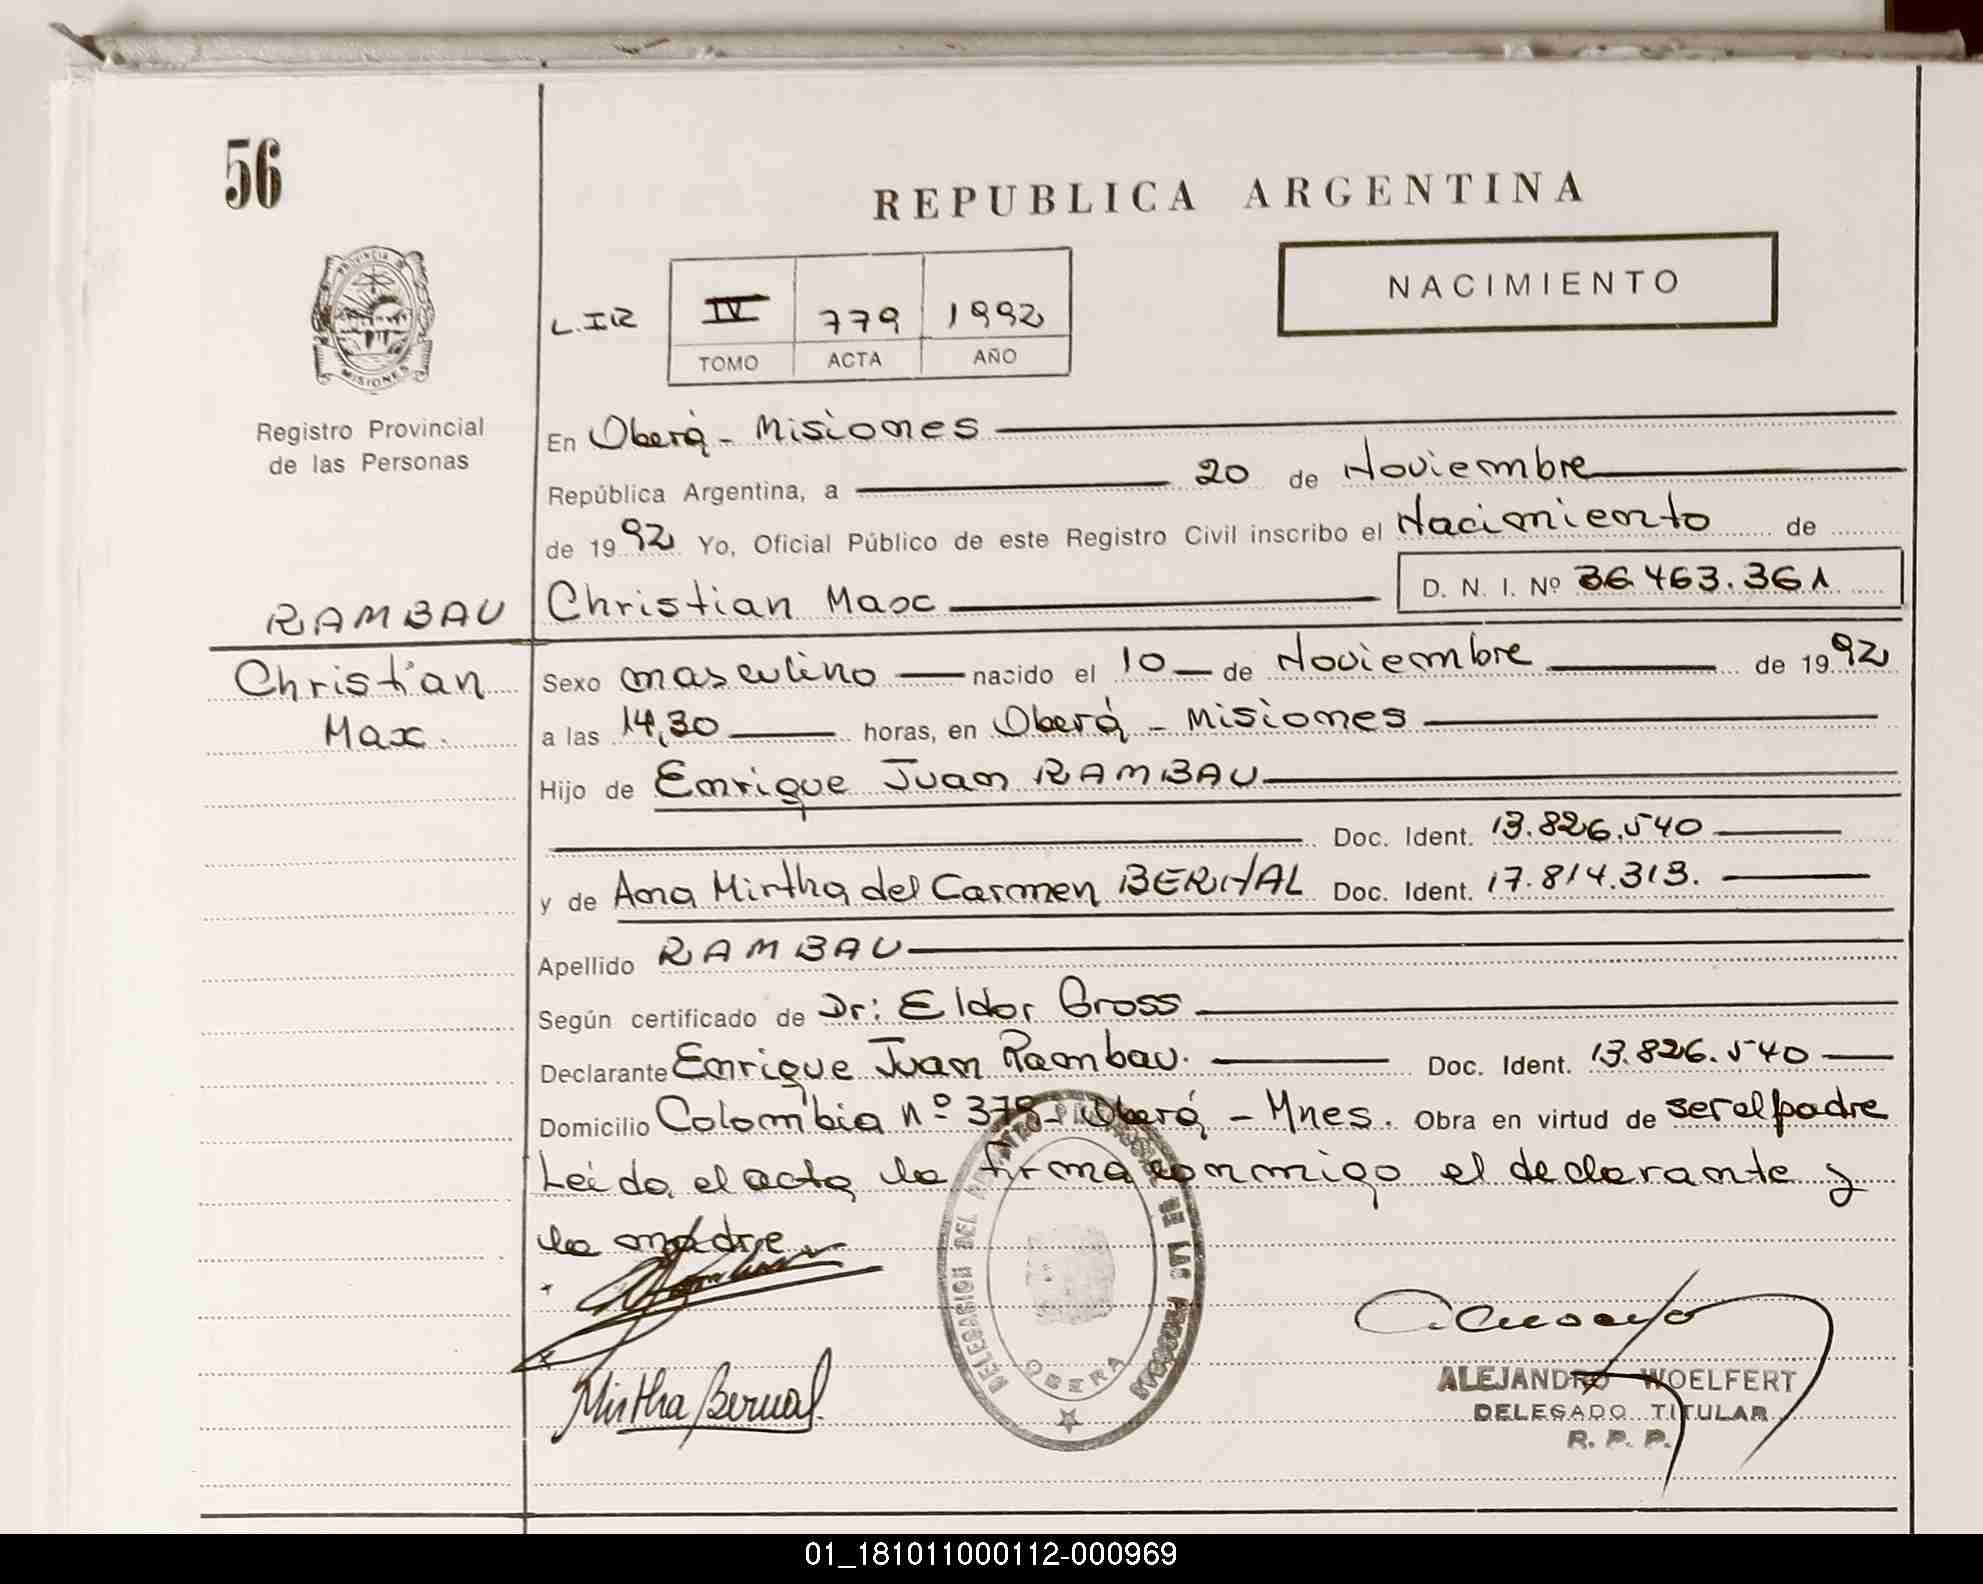 56
REPUBLICA ARGENTINA
PROVINCIA DE
MISIONES
NACIMIENTO
L.IR IV 779 1992
TOMO ACTA AÑO
Registro Provincial
de las Personas
En Oberá - Misiones
República Argentina, a 20 de Noviembre
de 1992 Yo, Oficial Público de este Registro Civil inscribo el Nacimiento de
Christian Max D. N. I. Nº 36.463.361
RAMBAU
Christian
Max.
Sexo masculino nacido el 10 de Noviembre de 1992
a las 14,30 horas, en Oberá - Misiones
Hijo de Enrique Juan RAMBAU
Doc. Ident. 13.826.540
y de Ana Mirtha del Carmen BERNAL Doc. Ident. 17.814.313.
Apellido RAMBAU
Según certificado de Dr: Eldor Gross
Declarante Enrique Juan Rambau. Doc. Ident. 13.826.540
Domicilio Colombia nº 378- Oberá - Mnes. Obra en virtud de ser el padre
Leída el acta la firma conmigo el declarante y
la madre
DELEGASION DEL DE LAS PERSONAS
OBERA
Mirtha Bernal.
ALEJANDRO WOELFERT
DELEGADO TITULAR
R. P. P.
01_181011000112-000969